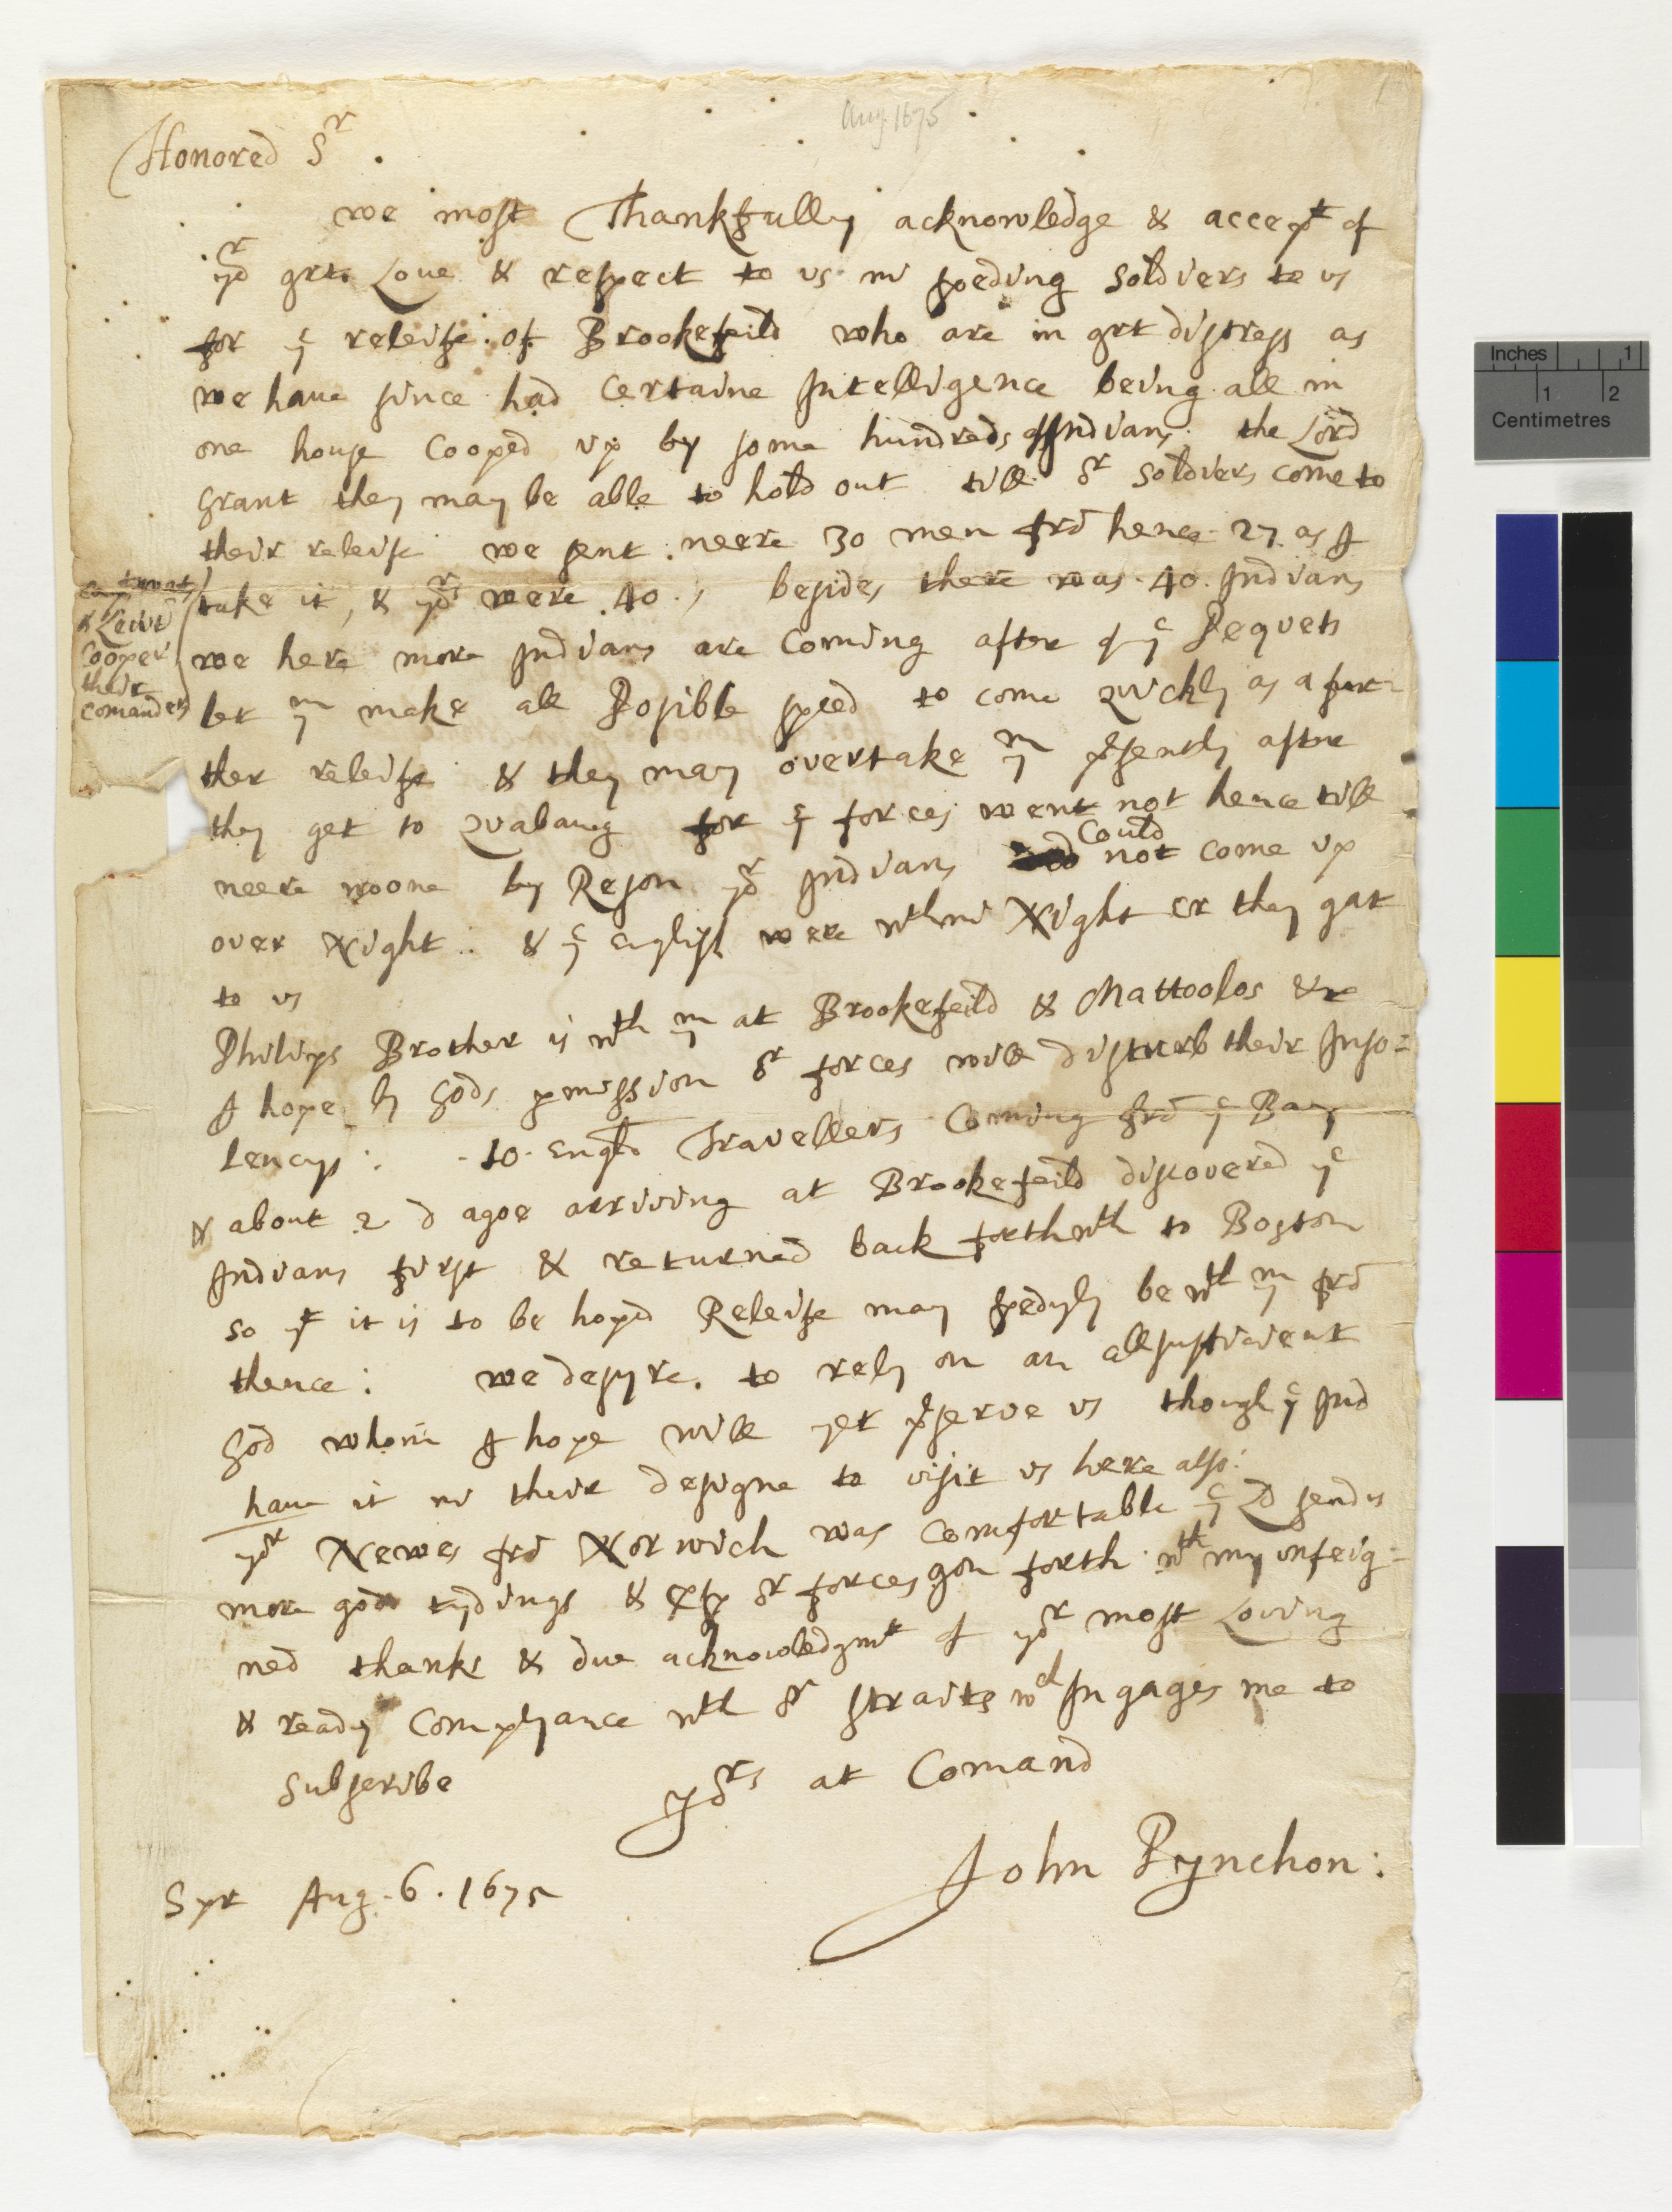 Aug. 1675
Honored Sr.
we most Thankfully acknowledge & accept of
yor grt Loue & respect to us in speeding Soldiers to us
for ye releife of Brookefeild who are in grt distress as
we haue since had Certaine Intelligence being all in
one house Cooped up by some hundreds of Indians: the Lord
grant they may be able to hold out till or Soldiers come to
their releife we sent neere 30 men fro hence 27 as I
take it, & yors were 40., besides there was 40. Indians
& Leivt
Cooper
their
comanders
we here more Indians are Coming after of ye Pequets
let ym make all Posible speed to come quickly as a fur-
ther releife & they may overtake ym psently after
they get to Quabaug for ye forces went not hence till
neere noone by Reson yor Indians Could not come up
over Night: & ye English were wthin Night er they gat
to us
Philips Brother is wth ym at Brookefeild & Mattoolos &c
I hope by Gods pmission or forces will disturb their Inso=
lencys: to Engld Travellers Coming fro ye Bay
& about 2 d agoe arriving at Brookefeild discovered ye
Indians first & returned back forthwth to Boston
so yt it is to be hoped Releife may spedyly be wth ym fro
thence: we desyre to rely on an allsufficient
God whom I hope will yet pserve us though ye Ind
haue it in their designe to visit us here also:
yor Newes fro Norwich was Comfortable ye Ld send us
more good tydings & or forces gon forth wth my unfeig=
ned thanks & due acknowledgmt of yor most Loving
& ready Complyance wth or straites wch Ingages me to
Subscribe
yors at Comand
John Pynchon:
Spr Aug. 6. 1675